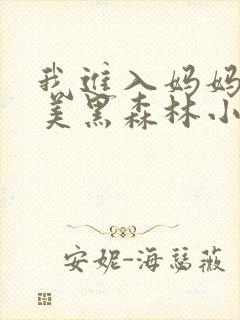 我进入妈妈
美黑森林小
安妮-海瑟薇